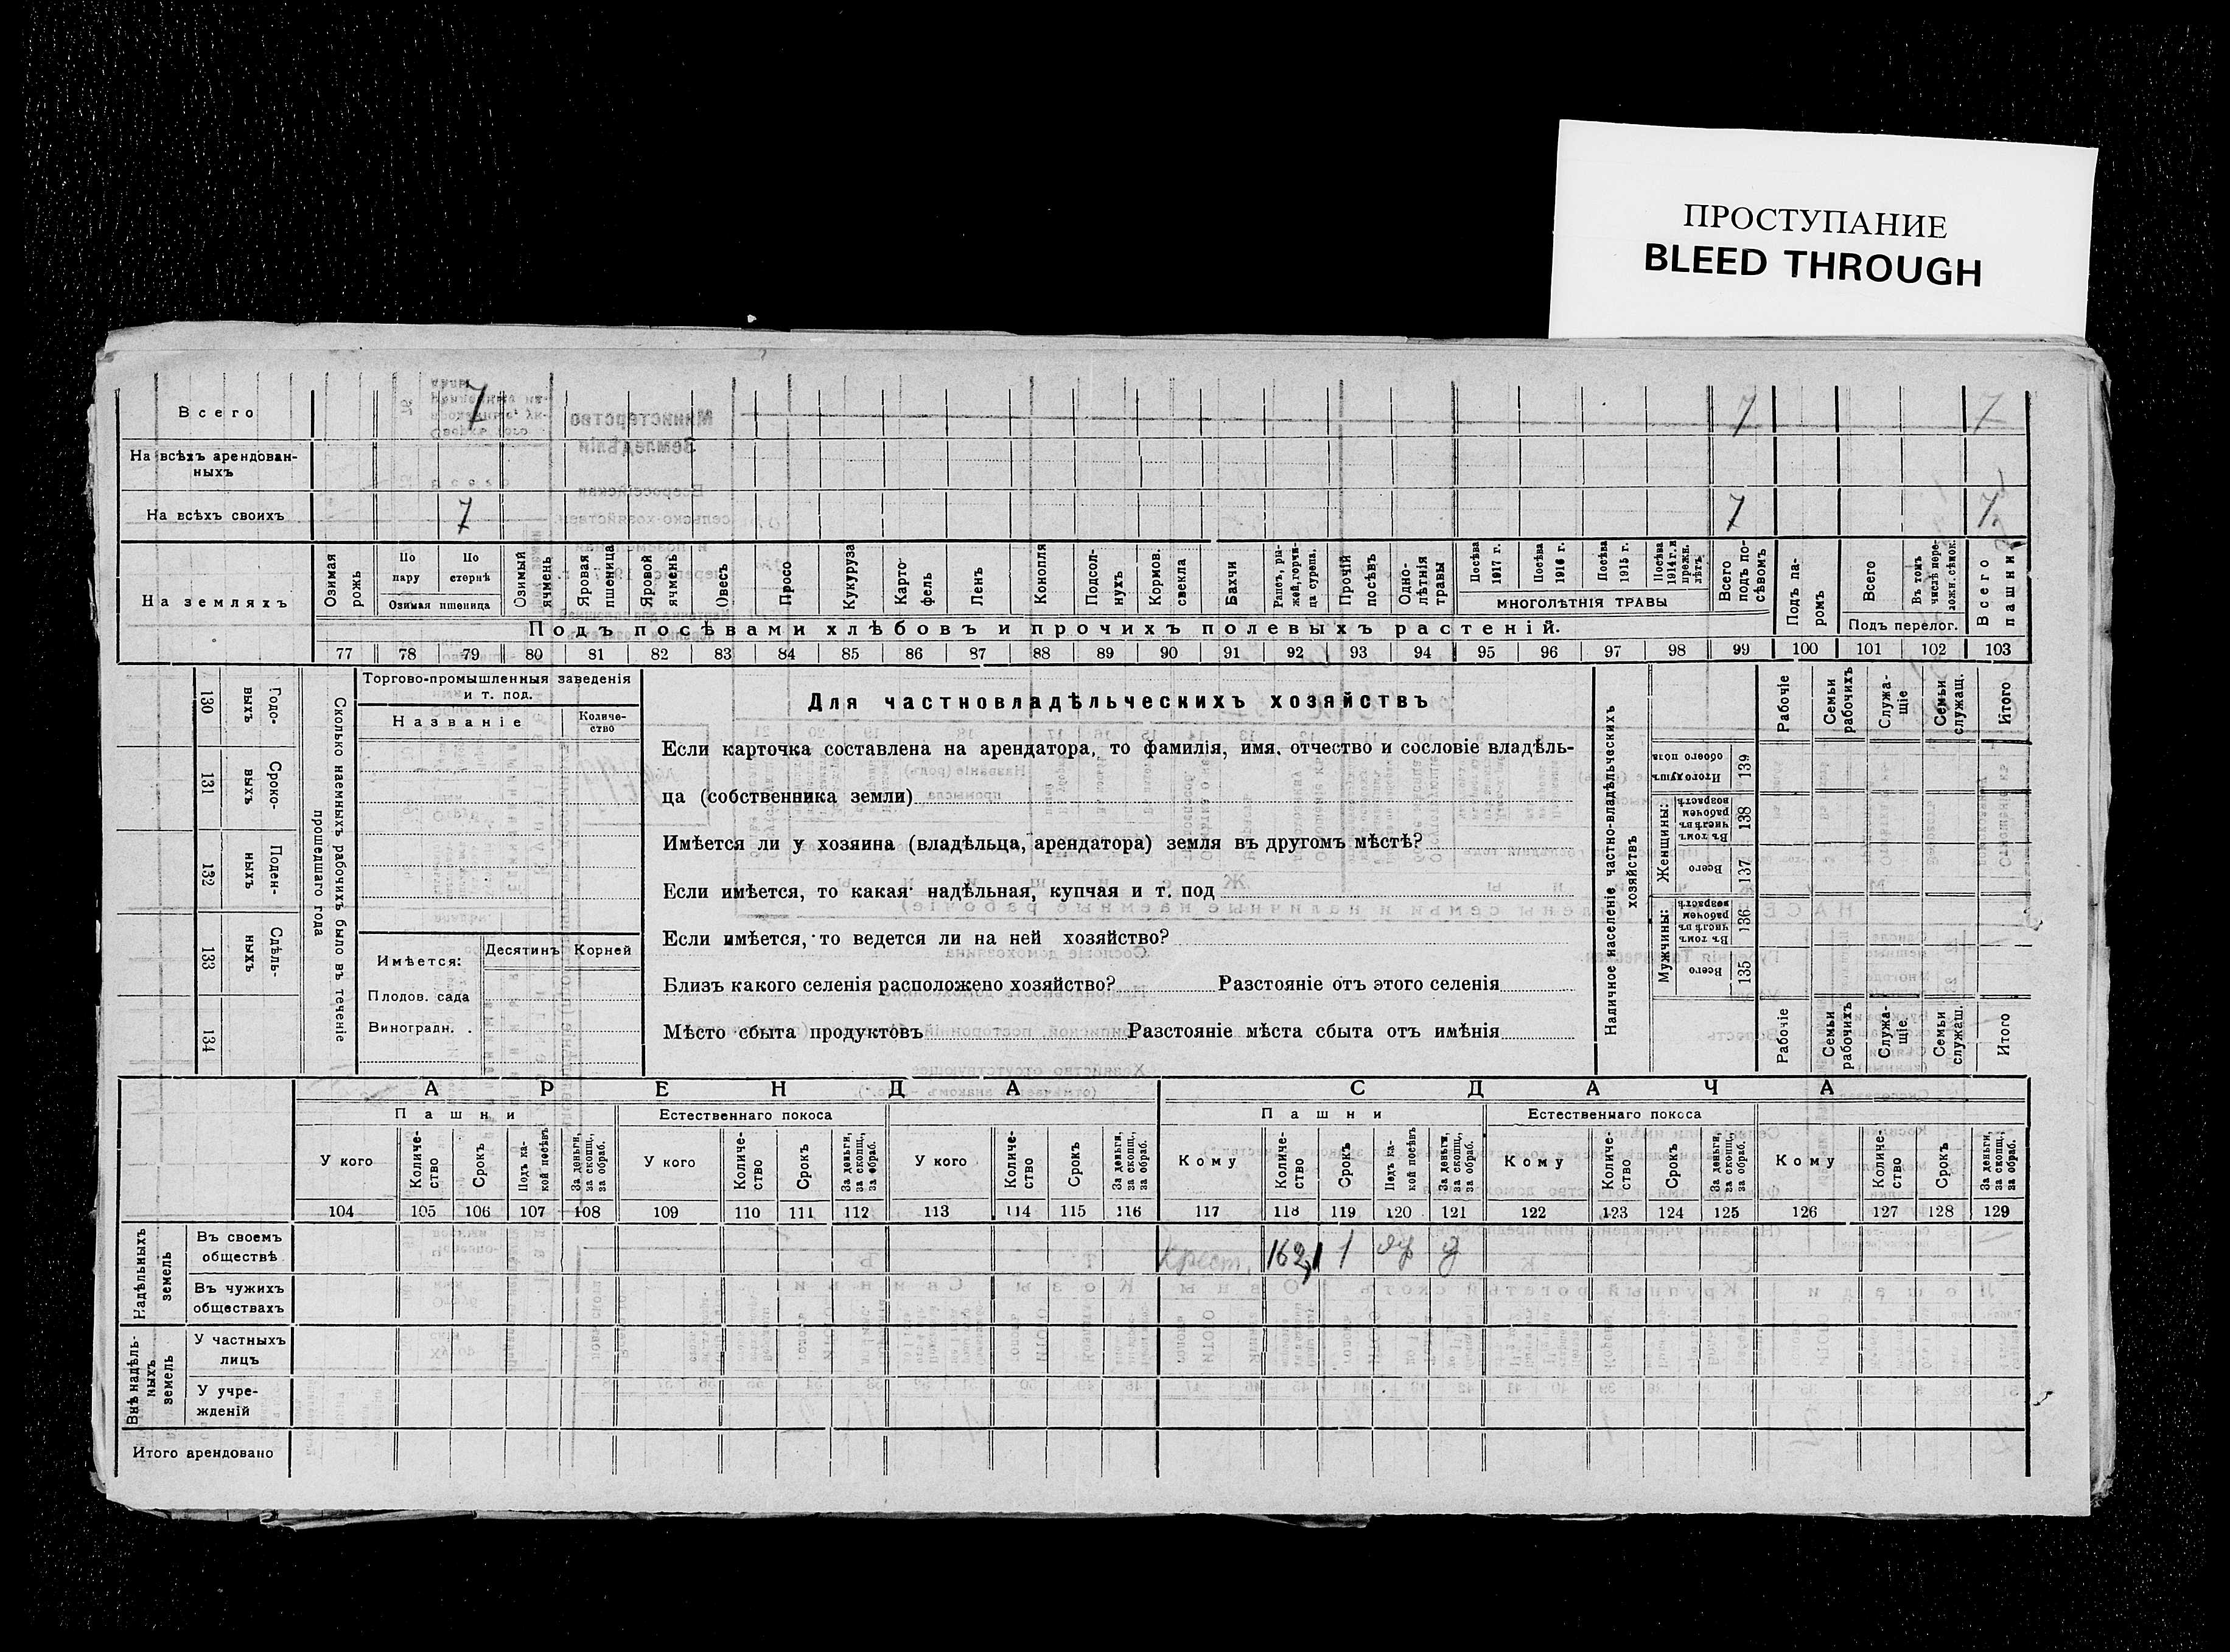 ПРОСТУПАНИЕ
BLEED THROUGH
Всего 7 7 7
На всѣхъ арендован-
ныхъ
На всѣхъ своихъ 7 7 7
На земляхъ
Озимая рожь
По пару
По стернѣ
Озимая пшеница
Озимый ячмень
Яровая пшеница
Яровой ячмень
Овесъ
Просо
Кукуруза
Карто-
фель
Ленъ
Конопля
Подсол-
нухъ
Кормов. свекла
Бахчи
Рапсъ, ры-
жей, горчи-
ца сурепа.
Прочій посѣвъ
Одно-
лѣтнія травы
Посѣва 1917 г.
Посѣва 1916 г.
Посѣва 1915 г.
Посѣва 1914 г. и прежн. лѣтъ
МНОГОЛѢТНІЯ ТРАВЫ
Всего подъ по-
сѣвомъ
Подъ па-
ромъ
Всего
Въ томъ числѣ пере-
ложн. сѣнок.
Подъ перелог.
Всего пашни
Подъ посѣвами хлѣбовъ и прочихъ полевыхъ растеній.
77 78 79 80 81 82 83 84 85 86 87 88 89 90 91 92 93 94 95 96 97 98 99 100 101 102 103
130 Годо-
выхъ
131 Сроко-
выхъ
132 Поден-
ныхъ
133 Сдѣль-
ныхъ
134
Сколько наемныхъ рабочихъ было въ теченіе
прошедшаго года
Торгово-промышленныя заведенія
и т. под.
Названіе
Количе-
ство
Имѣется:
Десятинъ
Корней
Плодов. сада
Виноградн. .
Для частновладѣльческихъ хозяйствъ
Если карточка составлена на арендатора, то фамилія, имя, отчество и сословіе владѣль-
ца (собственника земли)
Имѣется ли у хозяина (владѣльца, арендатора) земля въ другомъ мѣстѣ?
Если имѣется, то какая надѣльная, купчая и т. под
Если имѣется, то ведется ли на ней хозяйство?
Близъ какого селенія расположено хозяйство? Разстояніе отъ этого селенія
Мѣсто сбыта продуктовъ Разстояніе мѣста сбыта отъ имѣнія
Наличное населеніе частно-владѣльческихъ
хозяйствъ
Рабочіе
Семьи рабочихъ
Служа-
щіе
Семьи служащ.
Итого
Итого душъ обоего пола 139
Женщины:
Въ томъ числѣ въ рабочемъ возрастѣ 138
Всего 137
Мужчины:
Въ томъ числѣ въ рабочемъ возрастѣ 136
Всего 135
Рабочіе
Семьи рабочихъ
Служа-
щіе
Семьи служащ.
Итого
АРЕНДА
СДАЧА
Пашни
Естественнаго покоса
Пашни
Естественнаго покоса
У кого
Количе-
ство
Срокъ
Подъ ка-
кой посѣвъ
За деньги, за скопщ., за обраб.
У кого
Количе-
ство
Срокъ
За деньги, за скопщ., за обраб.
У кого
Количе-
ство
Срокъ
За деньги, за скопщ., за обраб.
Кому
Количе-
ство
Срокъ
Подъ ка-
кой посѣвъ
За деньги, за скопщ., за обраб.
Кому
Количе-
ство
Срокъ
За деньги, за скопщ., за обраб.
Кому
Количе-
ство
Срокъ
За деньги, за скопщ., за обраб.
104 105 106 107 108 109 110 111 112 113 114 115 116 117 118 119 120 121 122 123 124 125 126 127 128 129
Надѣльныхъ земель
Въ своемъ
обществѣ
Крест. 1
Въ чужихъ
обществахъ
Внѣ надѣль-
ныхъ земель
У частныхъ
лицъ
У учре-
жденій
Итого арендовано